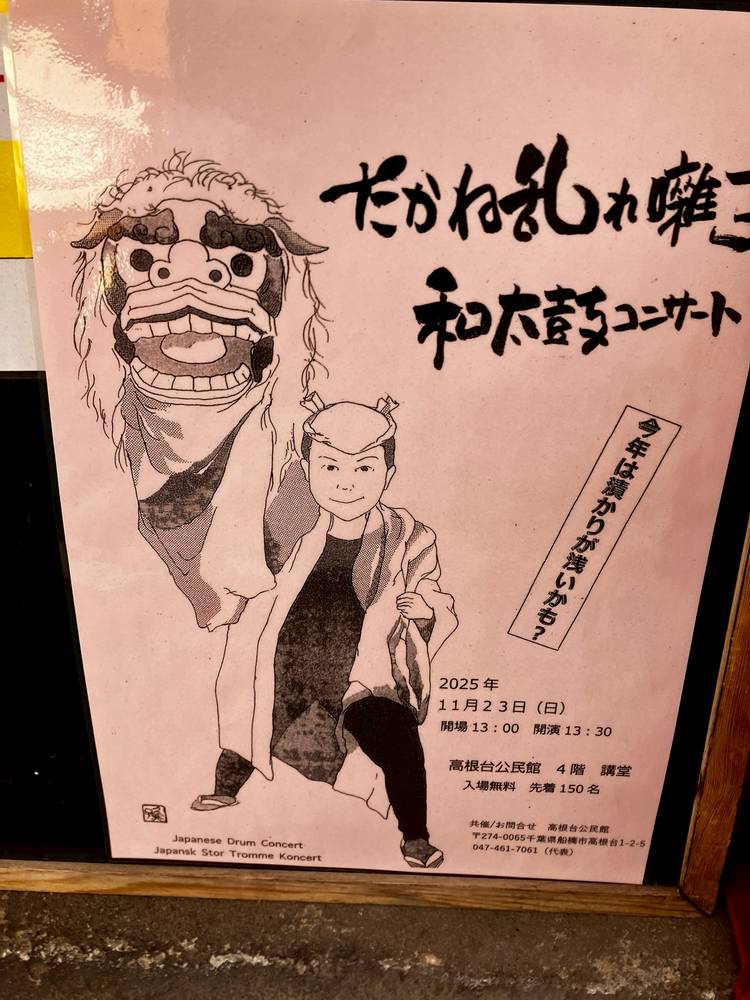 たかね乱れ囃子
和太鼓コンサート
今年は漬かりが浅いかも？
2025 年
11月23日（日）
開場 13：00　開演 13：30
高根台公民館　4階　講堂
入場無料　先着 150 名
共催/お問合せ　高根台公民館
〒274-0065千葉県船橋市高根台1-2-5
047-461-7061（代表）
Japanese Drum Concert
Japansk Stor Tromme Koncert